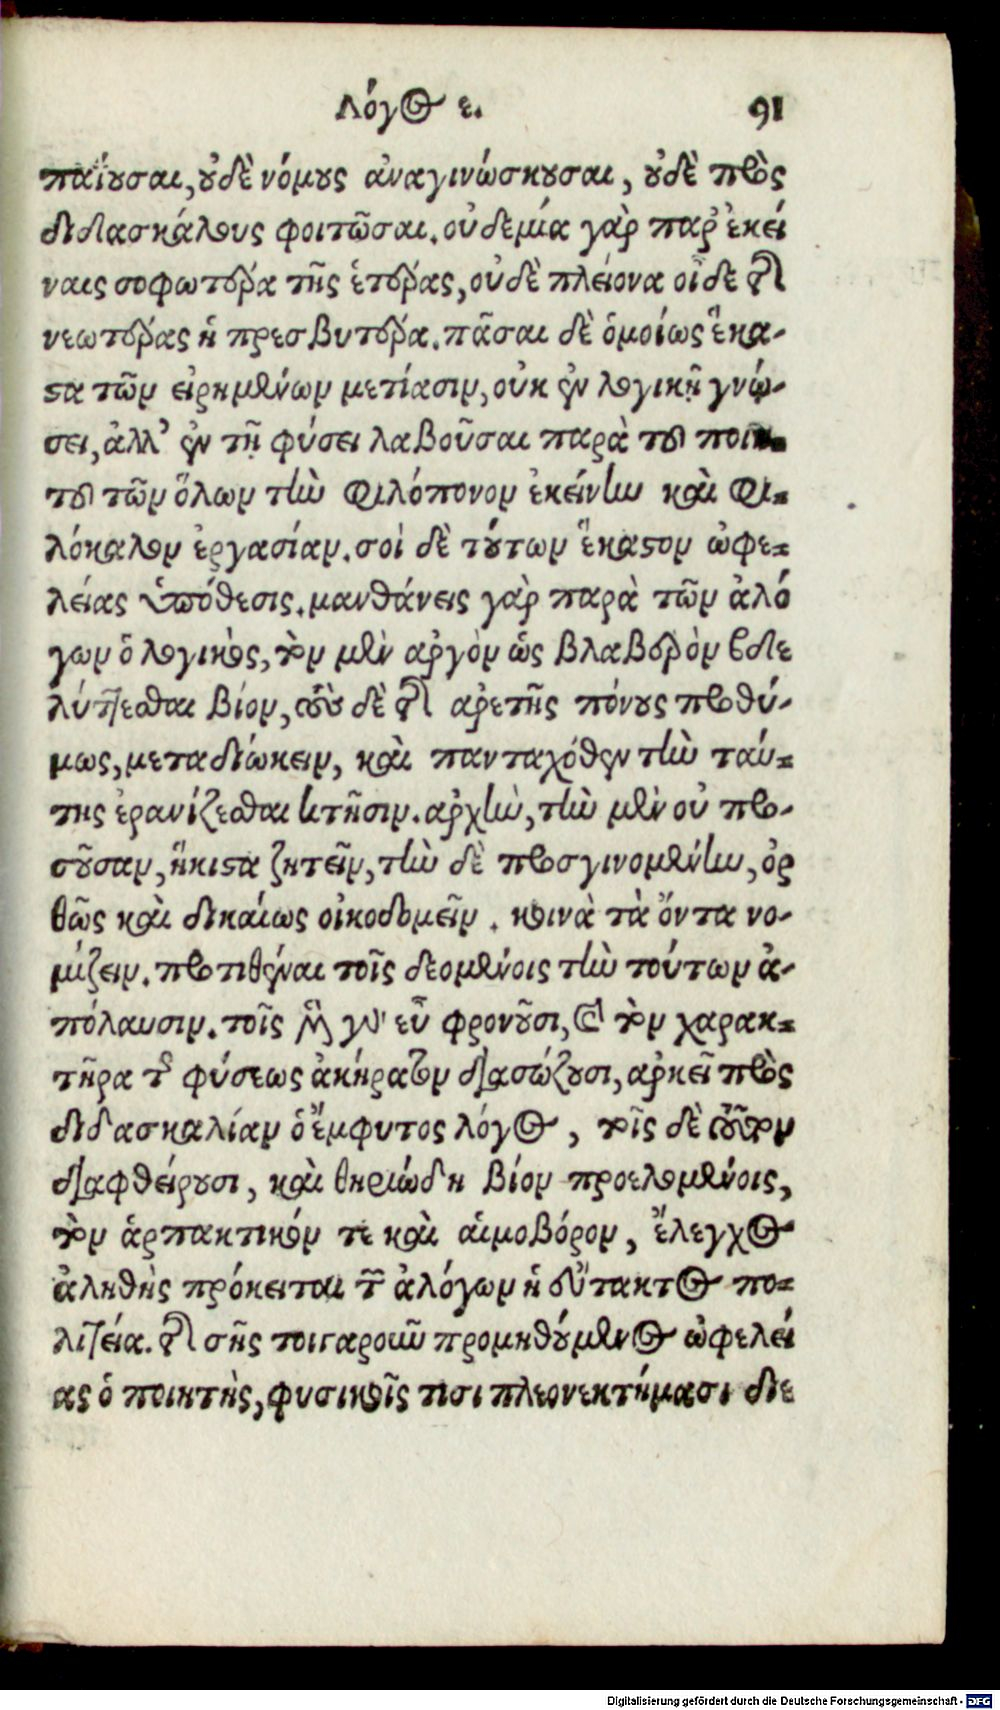 Λόγος ε. 91
παίουσαι, οὐδὲ νόμους ἀναγινώσκουσαι, οὐδὲ πρὸς
διδασκάλους φοιτῶσαι. οὐδεμία γὰρ παρ' ἐκεί
ναις σοφωτέρα τῆς ἑτέρας, οὐδὲ πλείονα οἶδε τῆς
νεωτέρας ἡ πρεσβυτέρα. πᾶσαι δὲ ὁμοίως ἕκα-
στα τῶν εἰρημένων μετίασιν, οὐκ ἐν λογικῇ γνώ-
σει, ἀλλ' ἐν τῇ φύσει λαβοῦσαι παρὰ τοῦ ποιη-
τοῦ τῶν ὅλων τὴν φιλόπονον ἐκείνην καὶ φι-
λόκαλον ἐργασίαν. σοὶ δὲ τούτων ἕκαστον ὠφε-
λείας ὑπόθεσις. μανθάνεις γὰρ παρὰ τῶν ἀλό
γων ὁ λογικὸς, τὸν μὲν ἀργὸν ὡς βλαβερὸν βδε
λύττεσθαι βίον, τοὺς δὲ τῆς ἀρετῆς πόνους προθύ-
μως, μεταδιώκειν, καὶ πανταχόθεν τὴν ταύ-
της ἐρανίζεσθαι κτῆσιν. ἀρχὴν, τὴν μὲν οὐ προ-
σοῦσαν, ἥκιστα ζητεῖν, τὴν δὲ προσγινομένην, ὀρ
θῶς καὶ δικαίως οἰκοδομεῖν. κοινὰ τὰ ὄντα νο-
μίζειν. προτιθέναι τοῖς δεομένοις τὴν τούτων ἀ-
πόλαυσιν. τοῖς μὲν γὰρ εὖ φρονοῦσι, καὶ τὸν χαρακ-
τῆρα τῆς φύσεως ἀκήρατον διασώζουσι, ἀρκεῖ πρὸς
διδασκαλίαν ὁ ἔμφυτος λόγος, τοῖς δὲ τοῦτον
διαφθείρουσι, καὶ θηριώδη βίον προελομένοις,
τὸν ἁρπακτικόν τε καὶ αἱμοβόρον, ἔλεγχος
ἀληθὴς πρόκειται τῶν ἀλόγων ἡ εὔτακτος πο-
λιτεία. τῆς σῆς τοιγαροῦν προμηθούμενος ὠφελεί
ας ὁ ποιητὴς, φυσικοῖς τισι πλεονεκτήμασι διε
Digitalisierung gefördert durch die Deutsche Forschungsgemeinschaft - DFG